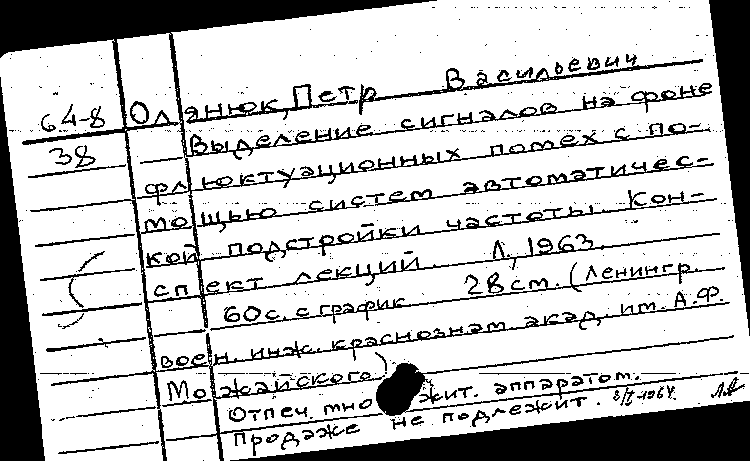 64-8 Оланюк, Петр Васильевич
38 Выделение сигналов на фоне
флюктуационных помех с по-
мощью систем автоматичес-
кой подстройки частоты. Кон-
спект лекций. Л., 1963.
60с. с график. 28 см. (Ленингр.
воен. инж. краснознам. акад. им. А.Ф.
Можайского)
Отпеч. множит. аппаратом.
Продаже не подлежит.